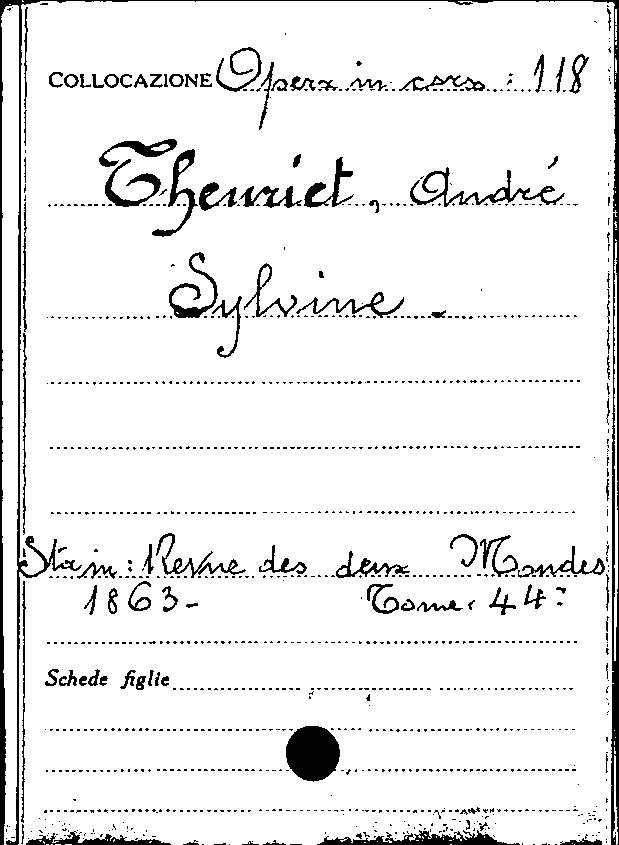 COLLOCAZIONE Opera in corso : 118
Theuriet, André
Sylvine -
Sta in : Revue des deux Mondes
1863 - Tome. 44º
Schede figlie